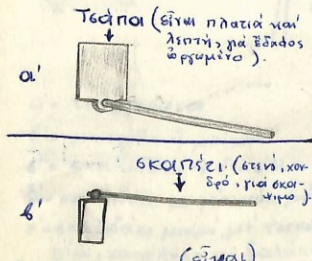 Τσάπα (εἶναι πλατιά καί
λεπτή, γιά ἔδαφος
ὠργωμένο).
α'
σκαπέτι (στενό, χον-
δρό, γιά σκα-
ψιμο).
β'
(εἶναι)